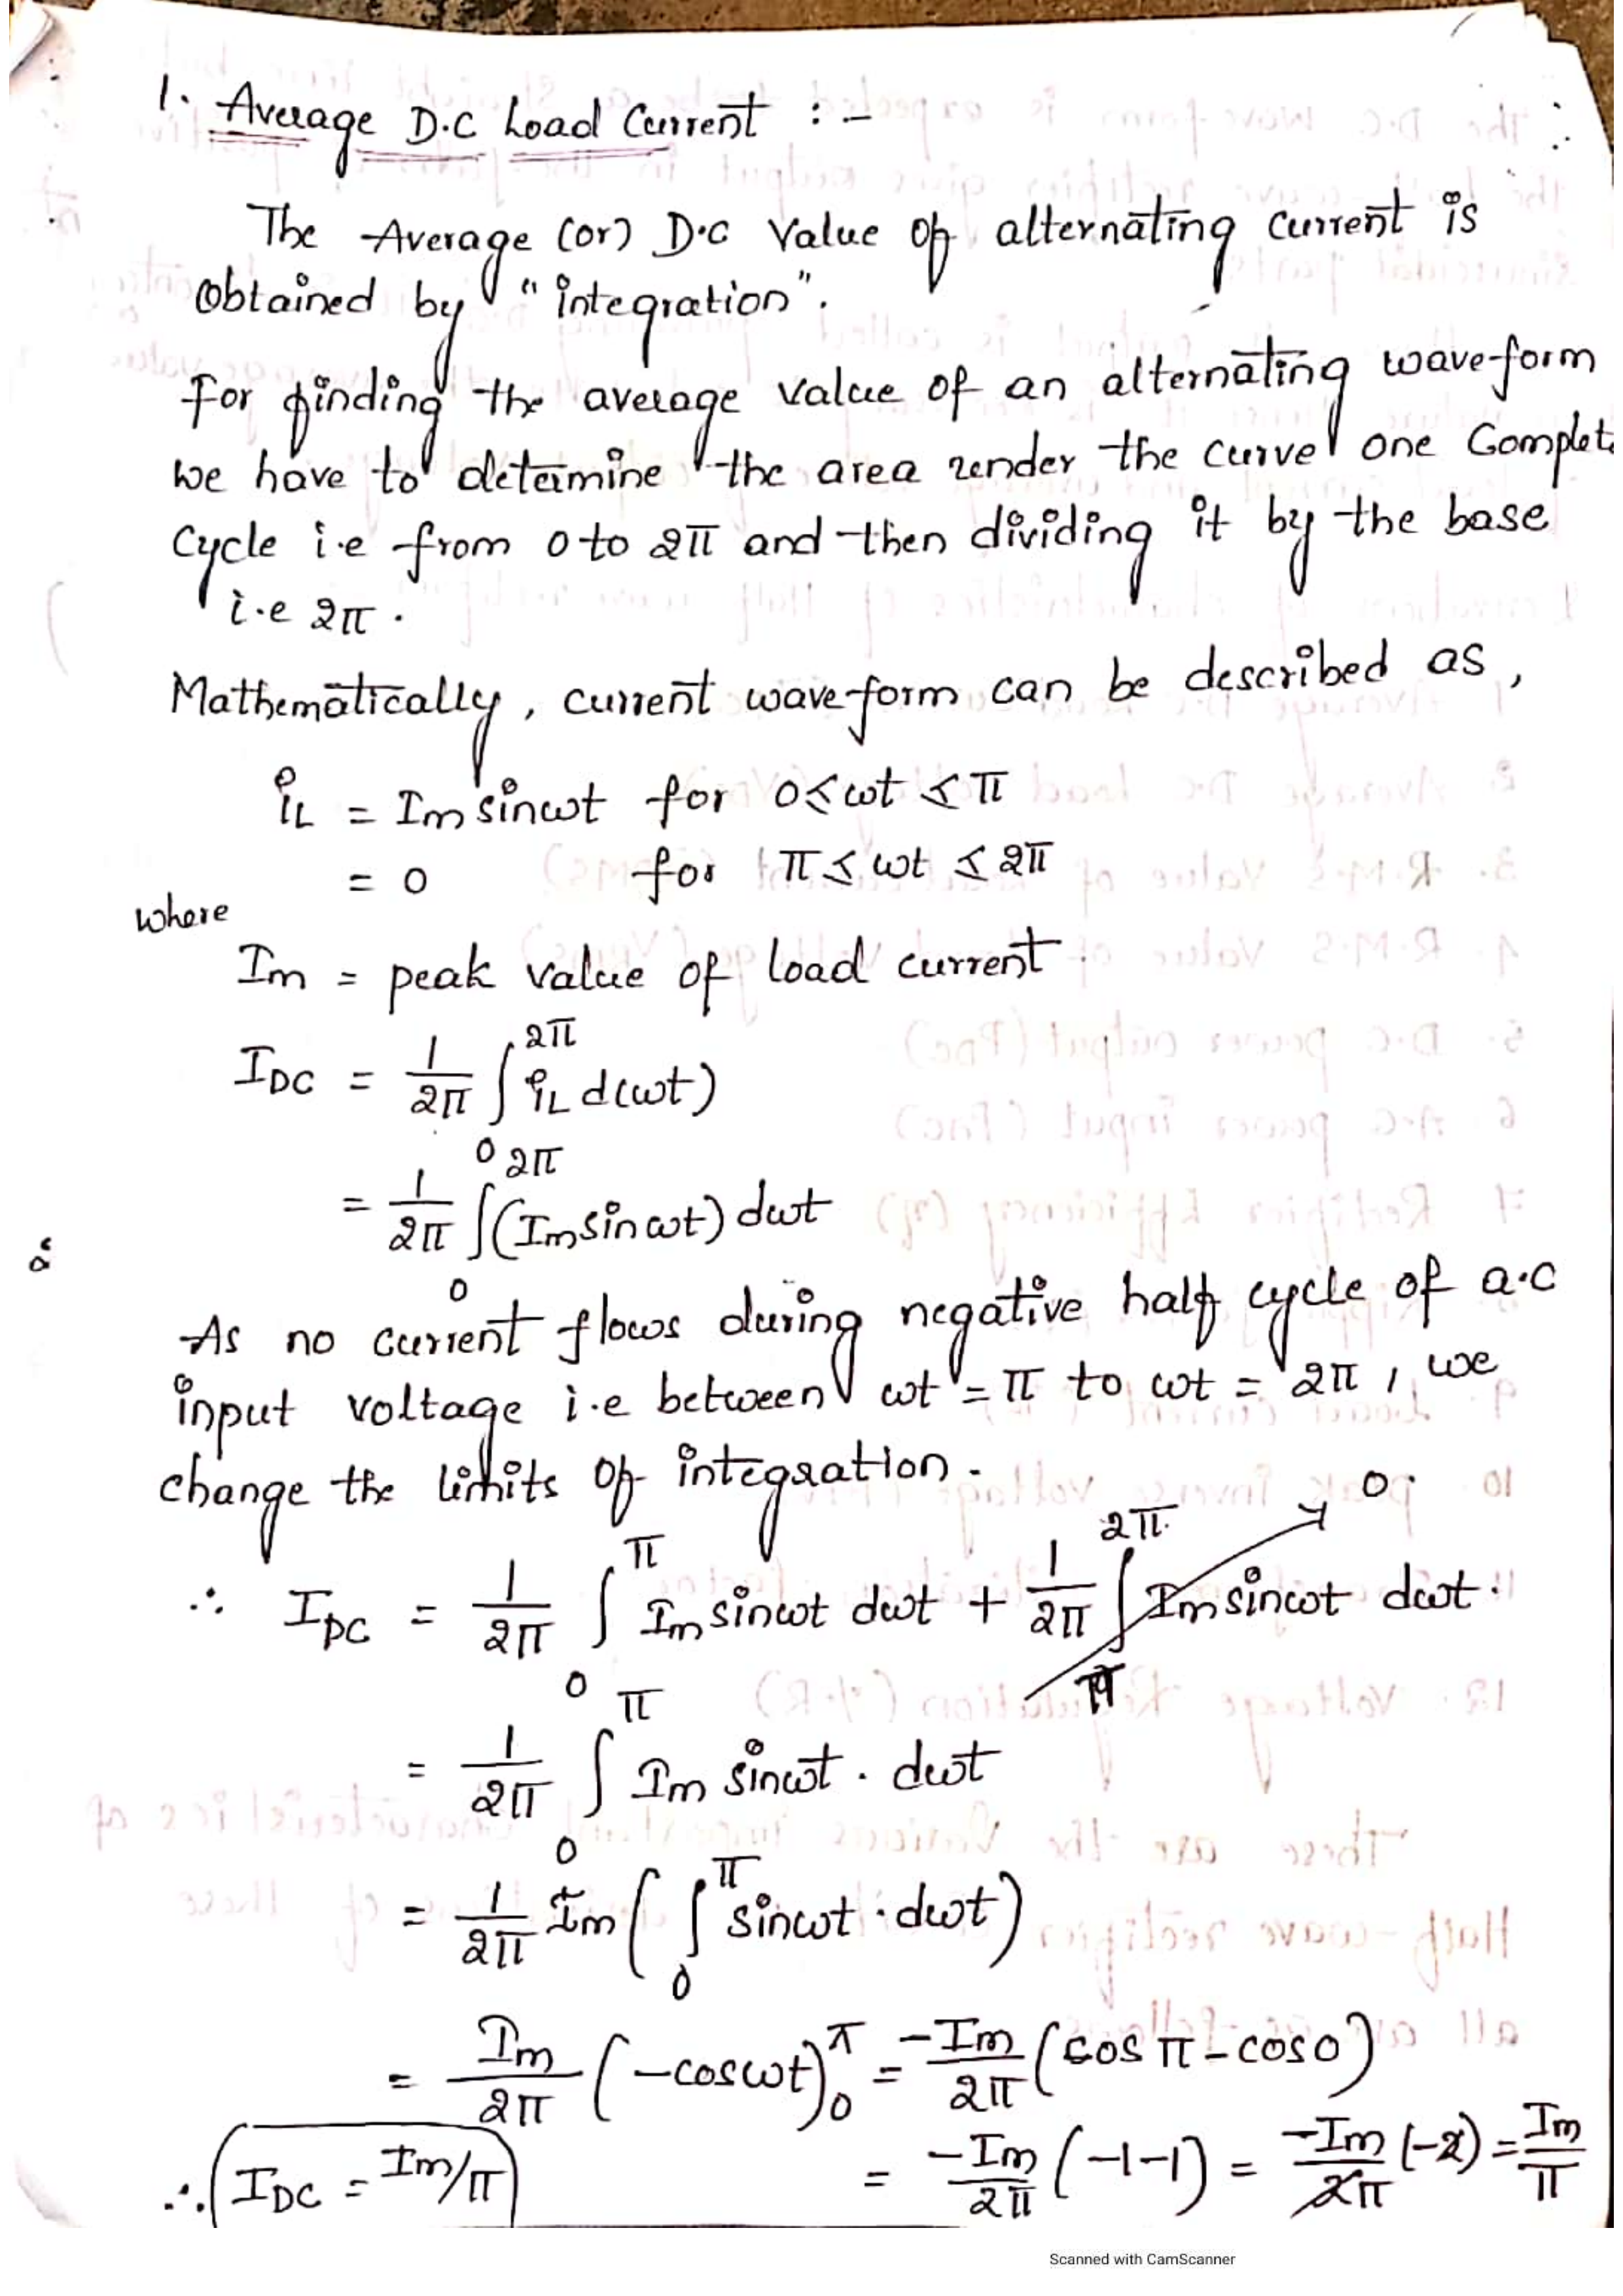 1. Average D.C Load Current :-
The Average (or) D.C Value of alternating current is
Obtained by "integration".
For finding the average value of an alternating waveform
we have to determine the area under the curve one Complet
Cycle i.e from 0 to 2π and then dividing it by the base
i.e 2π.
Mathematically, current waveform can be described as,
iL = Im sinωt for 0≤ωt≤π
= 0 for π≤ωt≤2π
where
Im = peak value of load current
IDC = 1/2π ∫₀^2π iL d(ωt)
= 1/2π ∫₀^2π (Im sinωt) dωt
As no current flows during negative half cycle of a.c
input voltage i.e between ωt = π to ωt = 2π, we
change the limits of integration.
∴ IDC = 1/2π ∫₀^π Im sinωt dωt + 1/2π ∫π^2π Im sinωt dωt. → 0.
= 1/2π ∫₀^π Im sinωt . dωt
= 1/2π Im ( ∫₀^π sinωt . dωt )
= Im/2π (-cosωt)₀^π = -Im/2π (cos π - cos 0)
= -Im/2π (-1-1) = -Im/2π (-2) = Im/π
∴ IDC = Im/π
Scanned with CamScanner